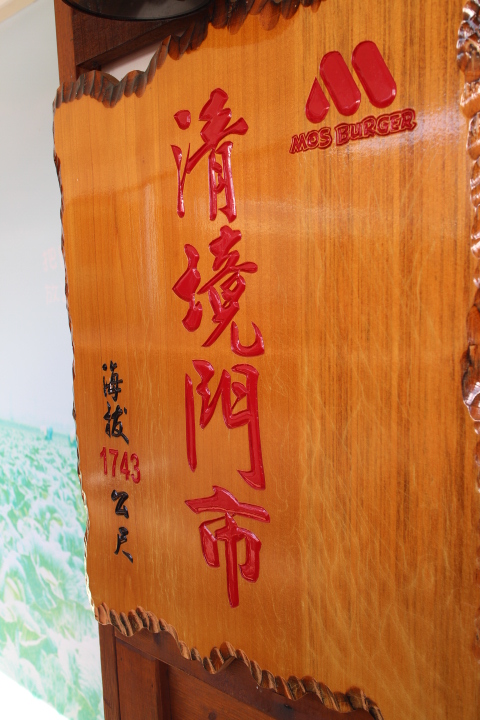 MOS BURGER
清境門市
海拔1743公尺